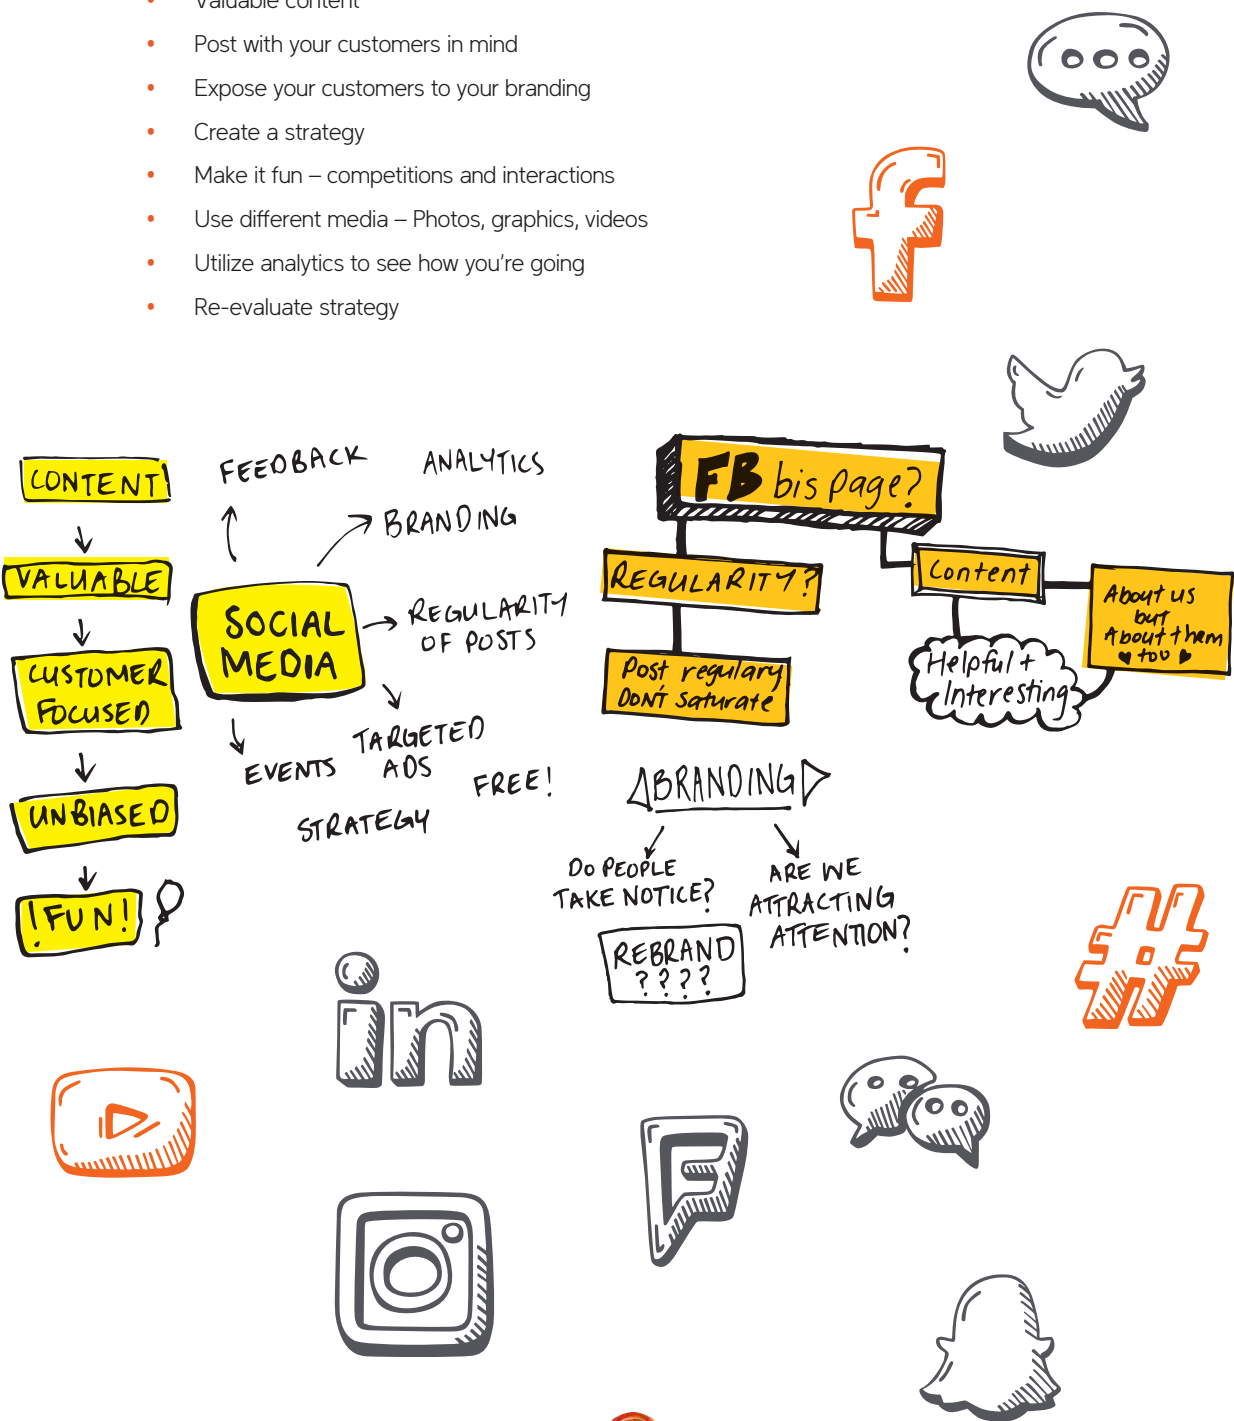 Valuable content
• Post with your customers in mind
• Expose your customers to your branding
• Create a strategy
• Make it fun – competitions and interactions
• Use different media – Photos, graphics, videos
• Utilize analytics to see how you're going
• Re-evaluate strategy
CONTENT
VALUABLE
CUSTOMER
FOCUSED
UNBIASED
!FUN!
FEEDBACK
ANALYTICS
BRANDING
SOCIAL
MEDIA
REGULARITY
OF POSTS
TARGETED
ADS
EVENTS
FREE!
STRATEGY
FB bis page?
REGULARITY?
Post regulary
DON'T saturate
Content
About us
but
About them
too
Helpful +
Interesting
BRANDING
DO PEOPLE
TAKE NOTICE?
REBRAND
? ? ? ?
ARE WE
ATTRACTING
ATTENTION?
#
in